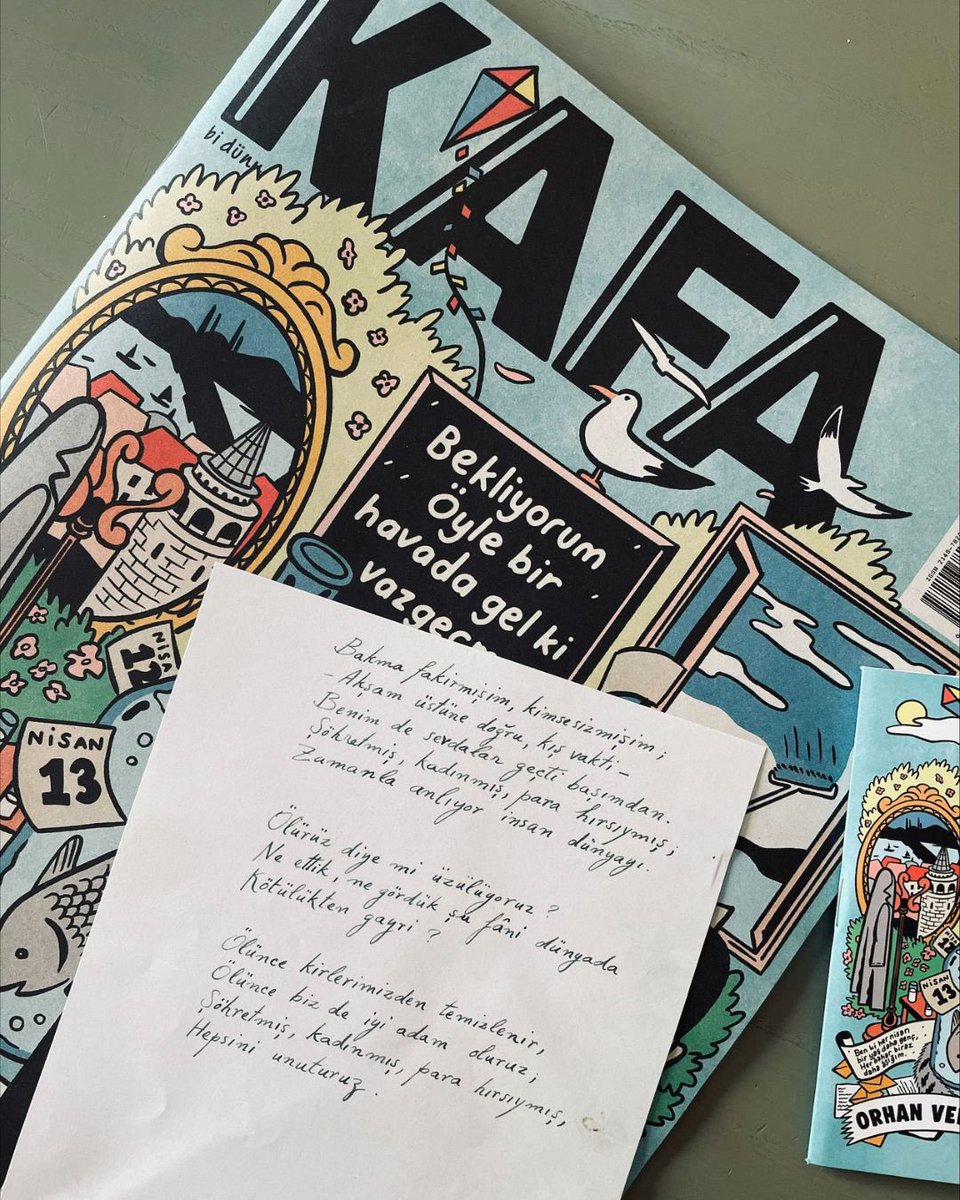 KAFA
bi
Bekliyorum
Öyle bir
havada gel ki
NİSA
12
NİSAN
13
Bakma fakirmişim, kimsesizmişim;
-Akşam üstüne doğru, kış vakti-
Benim de sevdalar geçti başımdan.
Şöhretmiş, kadınmış, para hırsıymış,
Zamanla anlıyor insan dünyayı.
Ölürüz diye mi üzülüyoruz?
Ne ettik, ne gördük şu fâni dünyada
Kötülükten gayri?
Ölünce kirlerimizden temizlenir,
Ölünce biz de iyi adam oluruz;
Şöhretmiş, kadınmış, para hırsıymış,
Hepsini unuturuz.
NİSAN
13
Ben ki her nisan
bir yaş daha genç,
Her bahar biraz
daha âşığım.
ORHAN VE